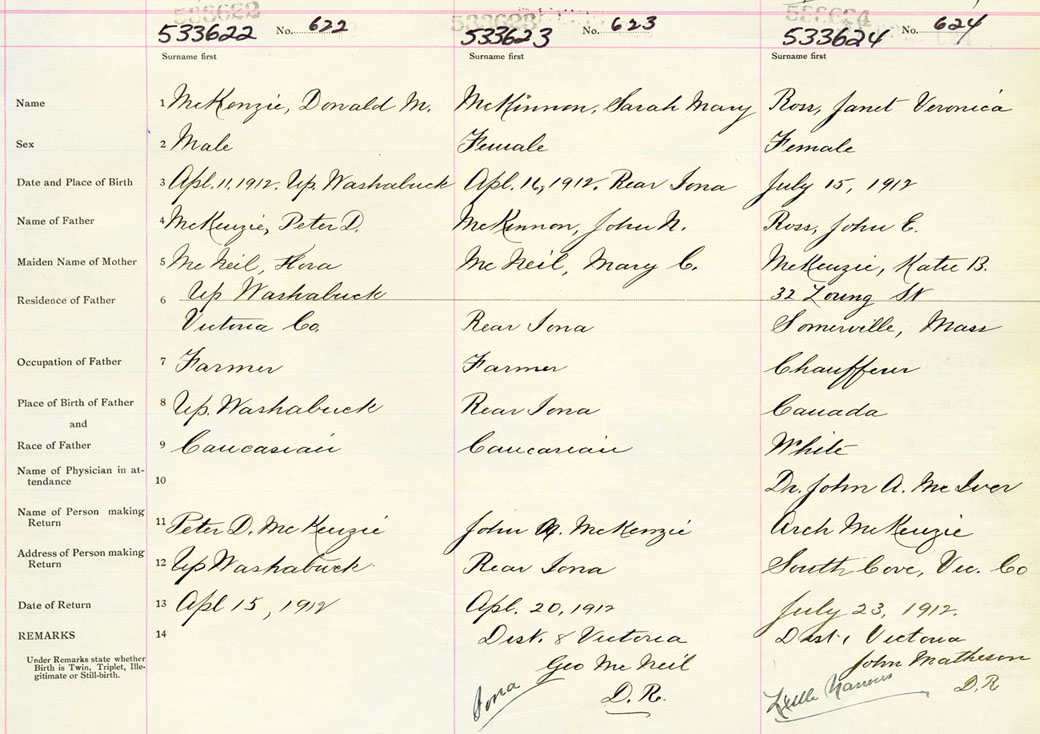 533622 No. 622
533623 No. 623
533624 No. 624
Surname first Surname first Surname first
Name 1 McKenzie, Donald M. McKinnon, Sarah Mary Ross, Janet Veronica
Sex 2 Male Female Female
Date and Place of Birth 3 Apl. 11, 1912. Up. Washabuck Apl. 16, 1912. Rear Iona July 15, 1912
Name of Father 4 McKenzie, Peter D. McKinnon, John N. Ross, John E.
Maiden Name of Mother 5 McNeil, Flora McNeil, Mary C. McKenzie, Katie B.
Residence of Father 6 Up Washabuck 32 St
Victoria Co. Rear Iona Somerville, Mass
Occupation of Father 7 Farmer Farmer Chauffeur
Place of Birth of Father 8 Up. Washabuck Rear Iona Canada
and
Race of Father 9 Caucasian Caucasian White
Name of Physician in at-
tendance 10 Dr. John A. McIver
Name of Person making
Return 11 Peter D. McKenzie John McKenzie Arch McKenzie
Address of Person making
Return 12 Up Washabuck Rear Iona South Cove, Vic. Co
Date of Return 13 Apl 15, 1912 Apl. 20, 1912 July 23, 1912.
REMARKS 14 Dist. 8 Victoria Dist. 1 Victoria
Under Remarks state whether
Birth is Twin, Triplet, Ille-
gitimate or Still-birth.
Geo McNeil John Matheson
Iona D.R. Little Narrows D.R